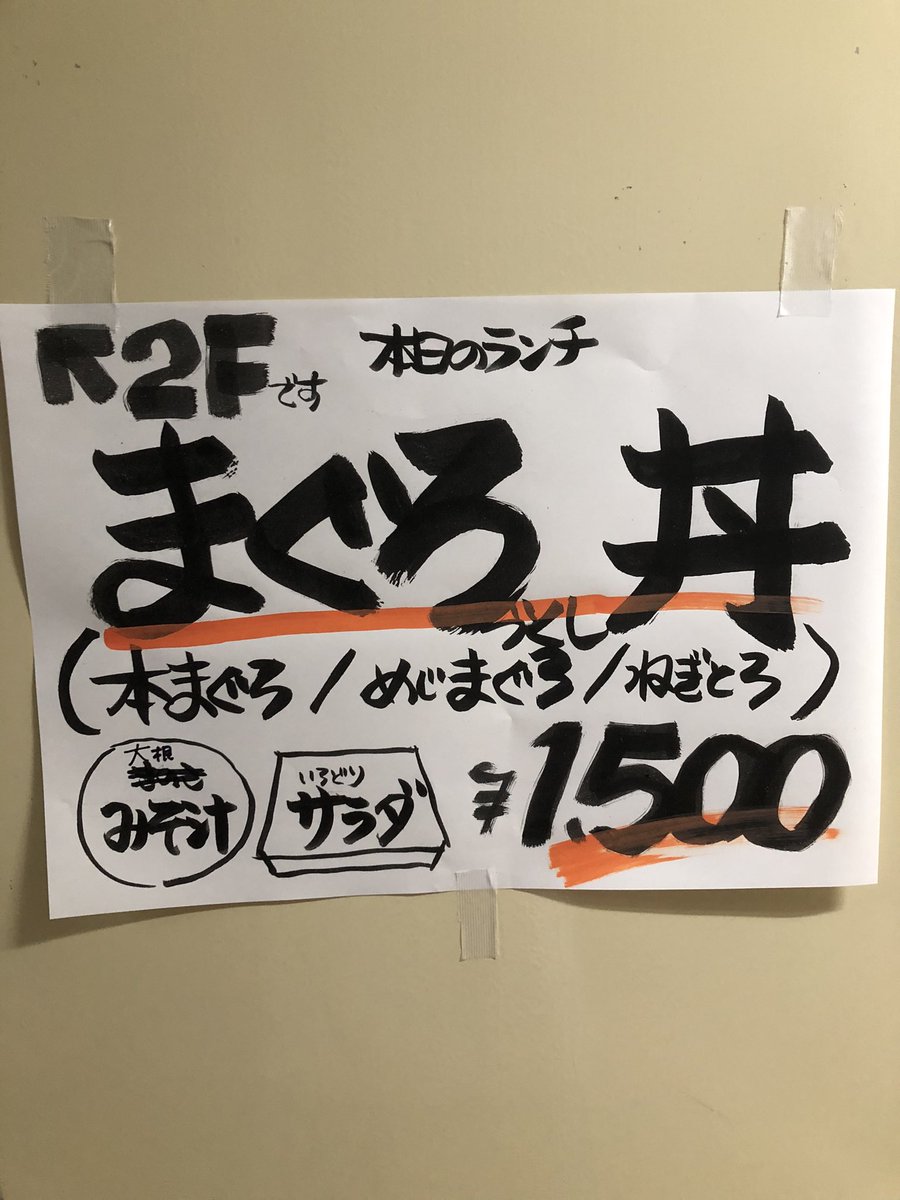 ↖2Fです 本日のランチ
まぐろづくし丼
(本まぐろ/めじまぐろ/ねぎとろ)
大根
みそ汁
いろどり
サラダ
¥1,500